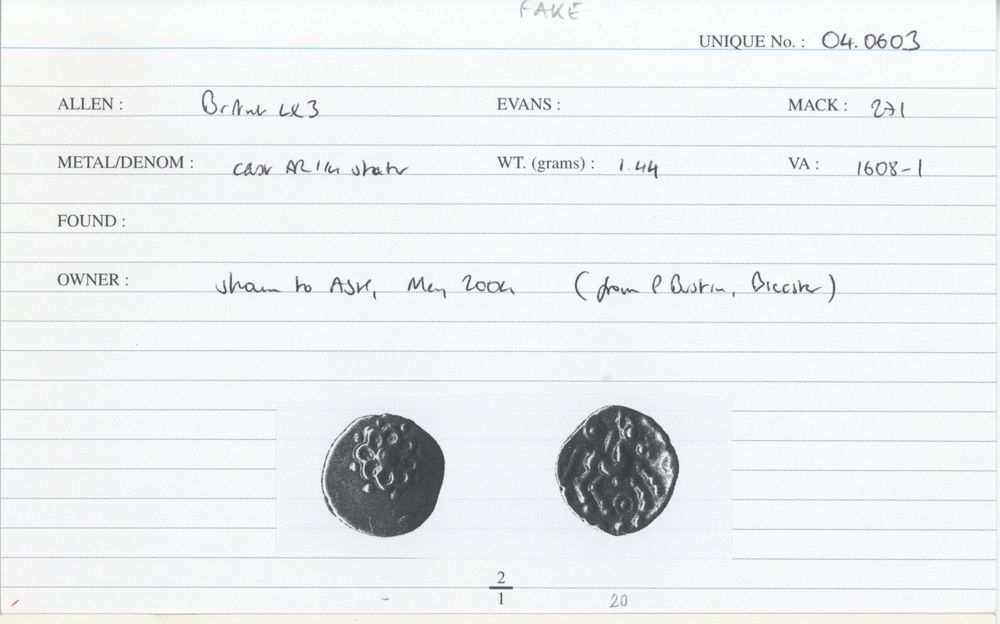 FAKE
UNIQUE No. : 04.0603
ALLEN : British LX3 EVANS : MACK : 271
METAL/DENOM : cast AR 1/4 stater WT. (grams) : 1.44 VA : 1608-1
FOUND :
OWNER : shown to ASH, May 2004 (from P Bustin, Bicester)
2
1
20